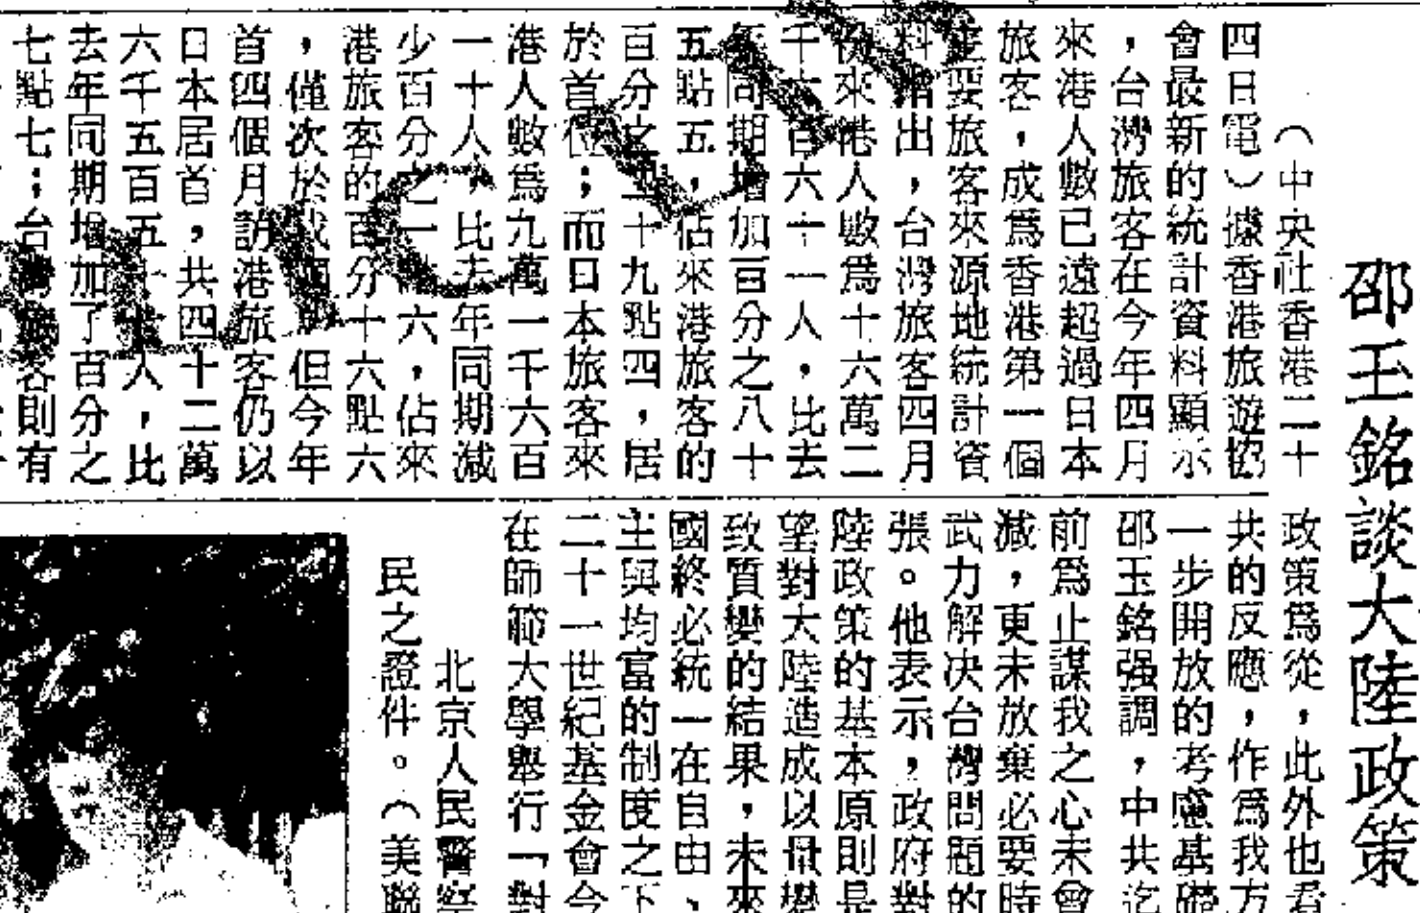 邵玉銘談大陸政策
（中央社香港二十
四日電）據香港旅遊協
會最新的統計資料顯示
，台灣旅客在今年四月
來港人數已遠超過日本
旅客，成爲香港第一個
主要旅客來源地統計資
料指出，台灣旅客四月
份來港人數爲十六萬二
千百六十一人，比去
年同期增加百分之八十
五點五，佔來港旅客的
百分之十九點四，居
於首位；而日本旅客來
港人數爲九萬一千六百
一十人，比去年同期減
少百分之六，佔來
港旅客的百分十六點六
，僅次於但今年
首四個月訪港旅客仍以
日本居首，共四十二萬
六千五百五十人，比
去年同期增加了百分之
七點七；台灣旅客則有
政策爲從，此外也看
共的反應，作爲我方
一步開放的考慮基礎
邵玉銘强調，中共迄
前爲止謀我之心未曾
減，更未放棄必要時
武力解决台灣問題的
張。他表示，政府對
陸政策的基本原則是
望對大陸造成以量變
致質變的結果，未來
國終必統一在自由、
主與均富的制度之下
二十一世紀基金會今
在師範大學舉行「對
北京人民警察
民之證件。（美聯